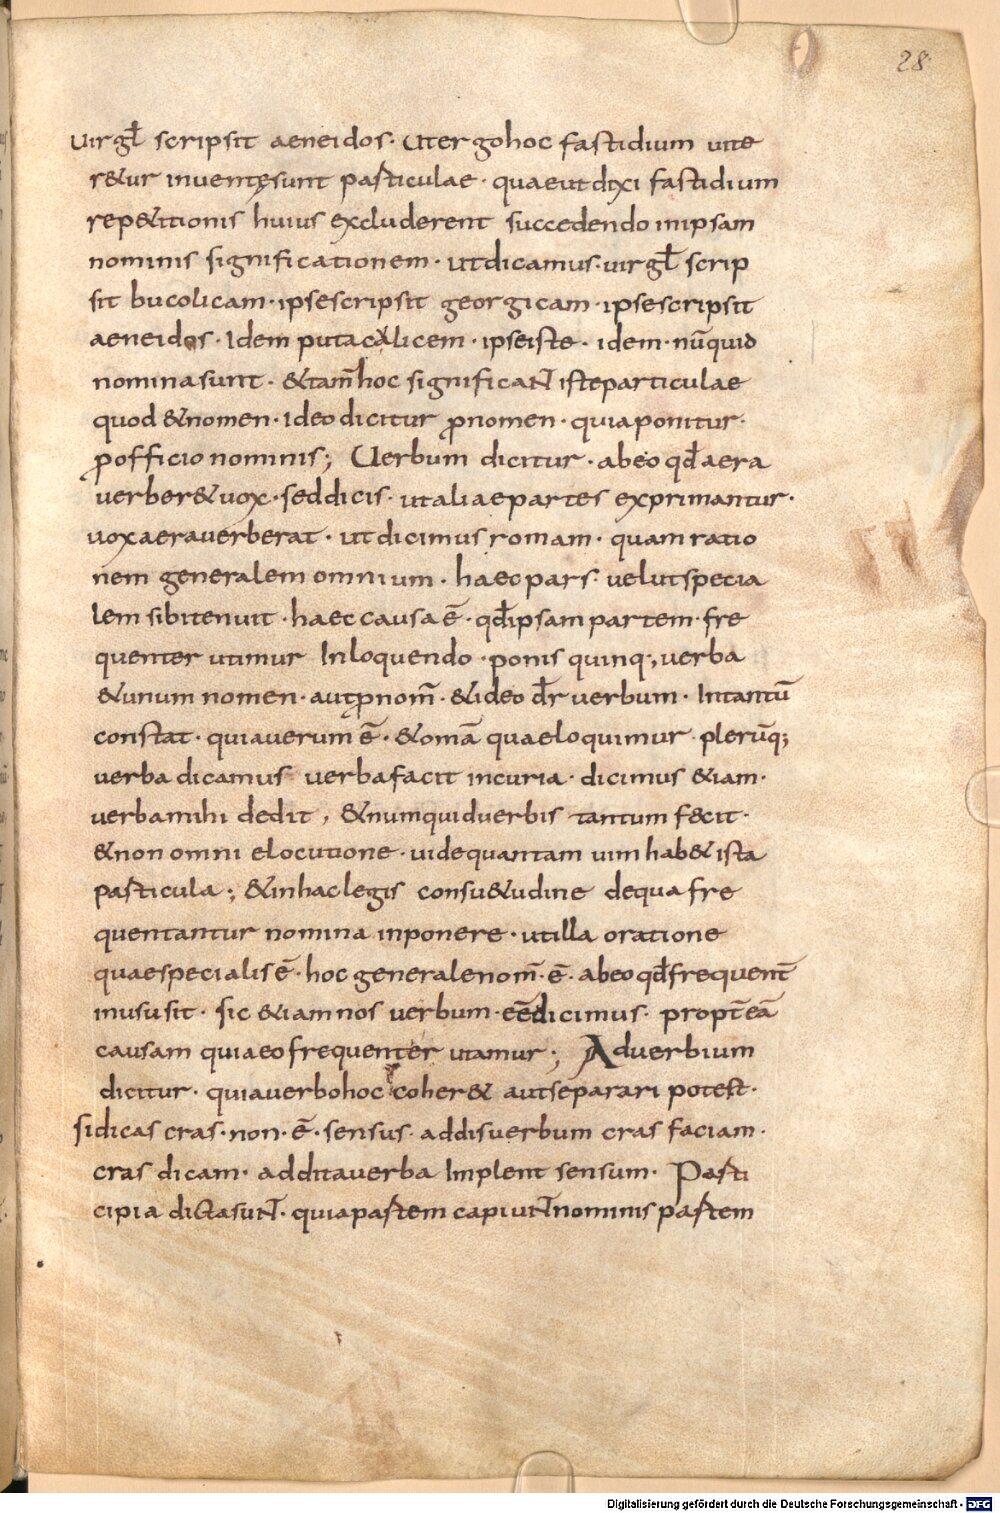 28
uirgl̄ scripsit aeneidos· Utergohoc fastidium uite
r&ur inventęsunt particulae· quaeutdixi fastidium
rep&itionis huius excluderent succedendo inipsam
nominis significationem· utdicamus· uirgl̄ scrip
sit bucolicam· ipsescripsit georgicam· ipsescripsit
aeneidos· Idem putacalicem· ipseiste· idem· nūquid
nominasunt· &tam̄hoc significaN̄ isteparticulae
quod &nomen· Ideo dicitur p̄nomen· quiaponitur·
p̄officio nominis; Uerbum dicitur· abeo qd̄ aera
uerber&uox· seddicis· utaliaepartes exprimantur·
uoxaerauerberat· utdicimus romam· quamratio
nem generalem omnium· haecpars· uelutspecia
lem sibitenuit· haec causa ē· qd̄ipsam partem· fre
quenter utimur Inloquendo· ponis quinq·, uerba
&unum nomen· autp̄nom̄· &ideo dr̄ uerbum· Intantū
constat· quiauerum ē· &omā quaeloquimur plerūq;
uerba dicamus uerbafacit incuria· dicimus &iam·
uerbamihi dedit, &numquiduerbis tantum fecit·
&non omni elocutione· uidequantam uim hab& ista
particula; &inhaclegis consu&udine dequa fre
quentantur nomina inponere· utilla oratione
quaespecialis ē· hoc generalenom̄· ē· abeo qd̄frequent̄
inususit· sic &iamnos uerbum· eēdicimus· propt̄eā
causam quiaeofrequenter utamur; Aduerbium
dicitur· quiauerbohoc coher& autseparari potest·
sidicas cras· non· ē· sensus· addisuerbum cras faciam·
cras dicam· additauerba Implent sensum· Parti
cipia dictasuN̄· quiapartem capiuN̄nominis partem
Digitalisierung gefördert durch die Deutsche Forschungsgemeinschaft - DFG